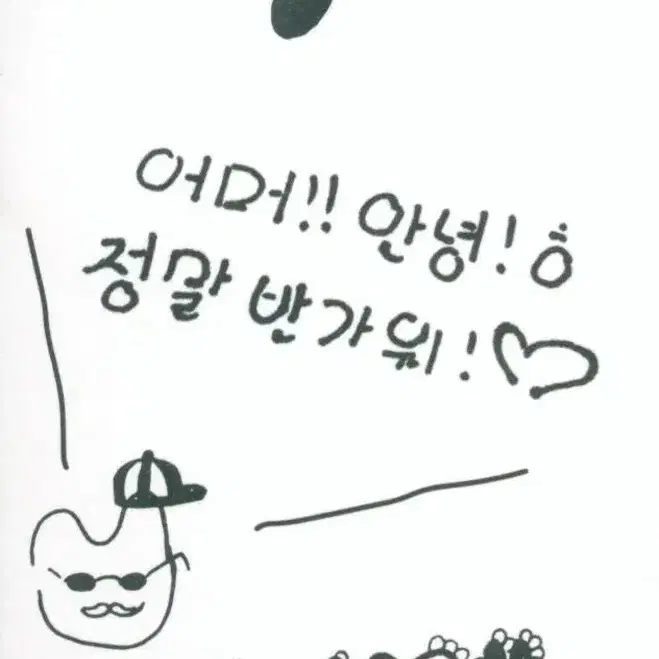 어머!! 안녕! ㅎ
정말 반가워! ♡